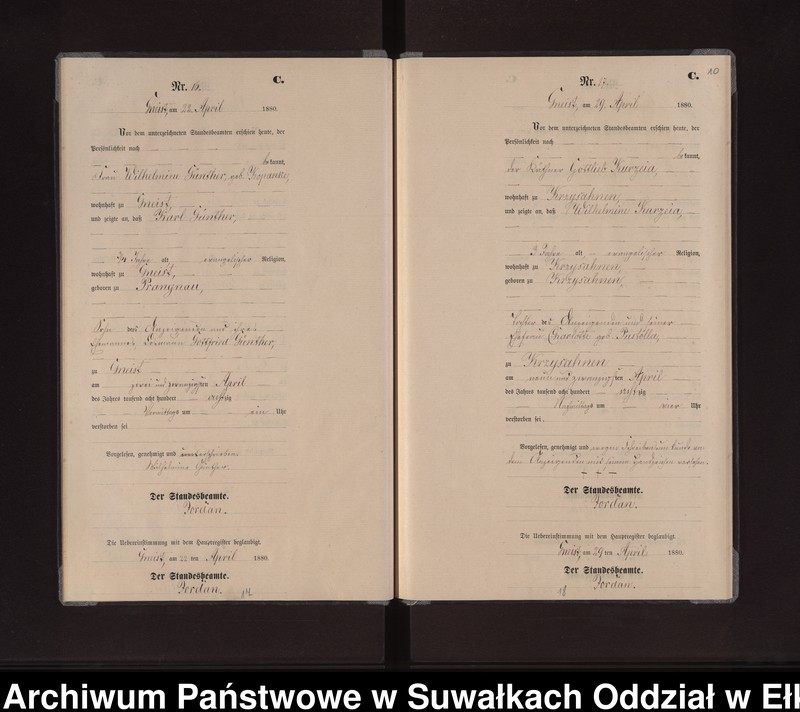 Nr. 16.
C.
Gneist, am 22. April 1880.
Vor dem unterzeichneten Standesbeamten erschien heute, der
Persönlichkeit nach
bekannt,
Frau Wilhelmine Günther, geb.
wohnhaft zu Gneist,
und zeigte an, daß Karl Günther,
3/4 Jahre alt evangelischer Religion,
wohnhaft zu Gneist,
geboren zu Prangnau,
Sohn des Anzeigenden und ihres
Ehemannes, Gottfried Günther,
zu Gneist
am zwei und zwanzigsten April
des Jahres tausend acht hundert achtzig
Vormittags um ein Uhr
verstorben sei
Vorgelesen, genehmigt und unterschrieben
Wilhelmine Günther.
Der Standesbeamte.
Jordan.
Die Uebereinstimmung mit dem Hauptregister beglaubigt.
Gneist, am 22 ten April 1880.
Der Standesbeamte.
Jordan.
Nr. 17.
C.
10
Gneist, am 29. April 1880.
Vor dem unterzeichneten Standesbeamten erschien heute, der
Persönlichkeit nach
bekannt,
der Gottlieb Kurzeia,
wohnhaft zu Krzysahnen,
und zeigte an, daß Wilhelmine Kurzeia,
3 Jahre alt evangelischer Religion,
wohnhaft zu Krzysahnen,
geboren zu Krzysahnen,
Tochter des Anzeigenden und seiner
Ehefrau geb.
zu Krzysahnen
am neun und zwanzigsten April
des Jahres tausend acht hundert achtzig
Nachmittags um vier Uhr
verstorben sei.
Vorgelesen, genehmigt und wegen von
dem Anzeigenden mit seinem Handzeichen versehen.
+ + +
Der Standesbeamte.
Jordan.
Die Uebereinstimmung mit dem Hauptregister beglaubigt.
Gneist, am 29 ten April 1880.
Der Standesbeamte.
Jordan.
18
Archiwum Państwowe w Suwałkach Oddział w Ełk